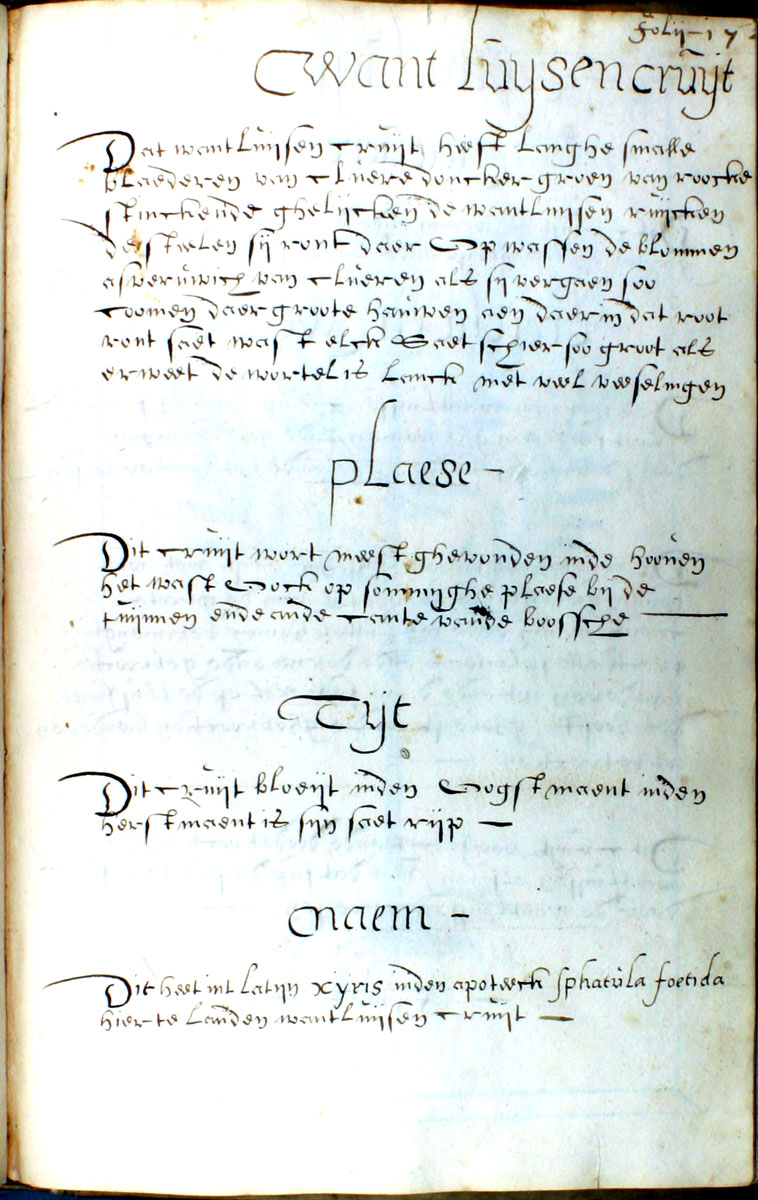 Folij 17
Want luijsencruijt
Dat wantluijsen cruijt heeft langhe smalle
blaederen van cluere doncker groen van roocke
stinckende ghelijcken de wantluijsen ruijcken
de steelen sij ront daer Op wassen de blommen
asveruwich van clueren als sij vergaen soo
coomen daer groote hauwen aen daer in dat root
ront saet wast elck Saet schier soo groot als
erweet de wortel is lanck met veel veeselingen
plaese
Dit cruijt wort meest ghevonden inde hooven
het wast Oock op sommijghe plaese bij de
tuijnen ende ande cante vande boossche
Tijt
Dit cruijt bloeijt inden Oogstmaent inden
herstmaent is sijn saet rijp
Naem
Dit heet int latijn xyris inden apoteeck sphatula foetida
hier te landen wantluijsen cruijt